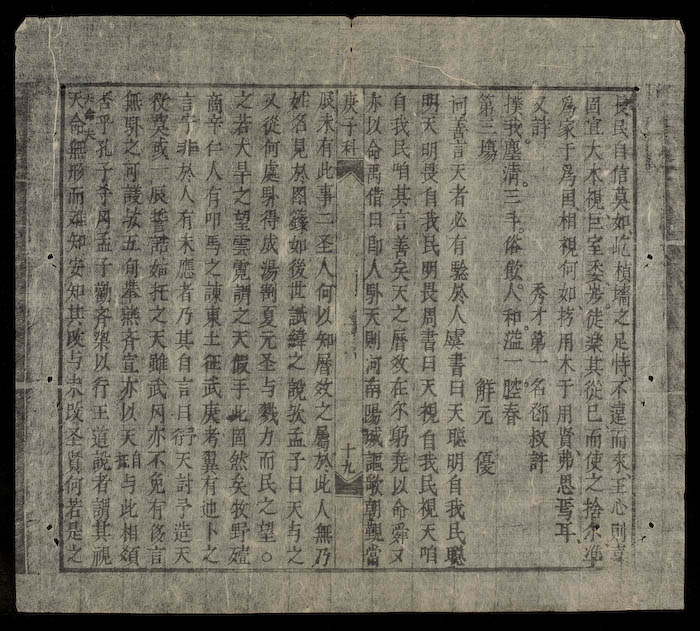 長民自信莫如屹楨墻之足恃不遑而來王心則喜
固宜大木視巨室委步徒樂其從已而使之捨尔準
爲家于爲国相視何如材用木于用賢弗思焉耳
又詩 秀才第一名邵叔許
撲我塵清三斗俗飲人和溢一腔春
第三塲 鮮元 優
问善言天者必有驗於人虞書曰天聪明自我民聪
明天明畏自我民明畏周書曰天視自我民視天咱
自我民咱其言善矣天之曆效在尔躬尭以命舜又
亦以命禹借曰即人卧天則河南陽城謳歌朝覲當
庚子科 十九
辰未有此事二圣人何以知曆效之屬於此人無乃
姓名見於图籙如後世讖緯之說欤孟子曰天与之
又從何處卧得成湯割夏元圣与戮力而民之望
之若大旱之望雲霓謂之天假手此固然矣牧野殪
商辛仁人有叩馬之諌東土征武庚考翼有迯卜之
言宁非於人有未應者乃其自言曰行天討予造天
役莫或一辰誓誥姑托之天雖武冈亦不免有後言
無卧之可諼与五旬挙燕齐宣亦以天 与此相類
否乎孔子季冈孟子勸齐梁以行王道說者謂其視
天命無形而难知安知其攺与未攺圣賢何若是之
天命夫